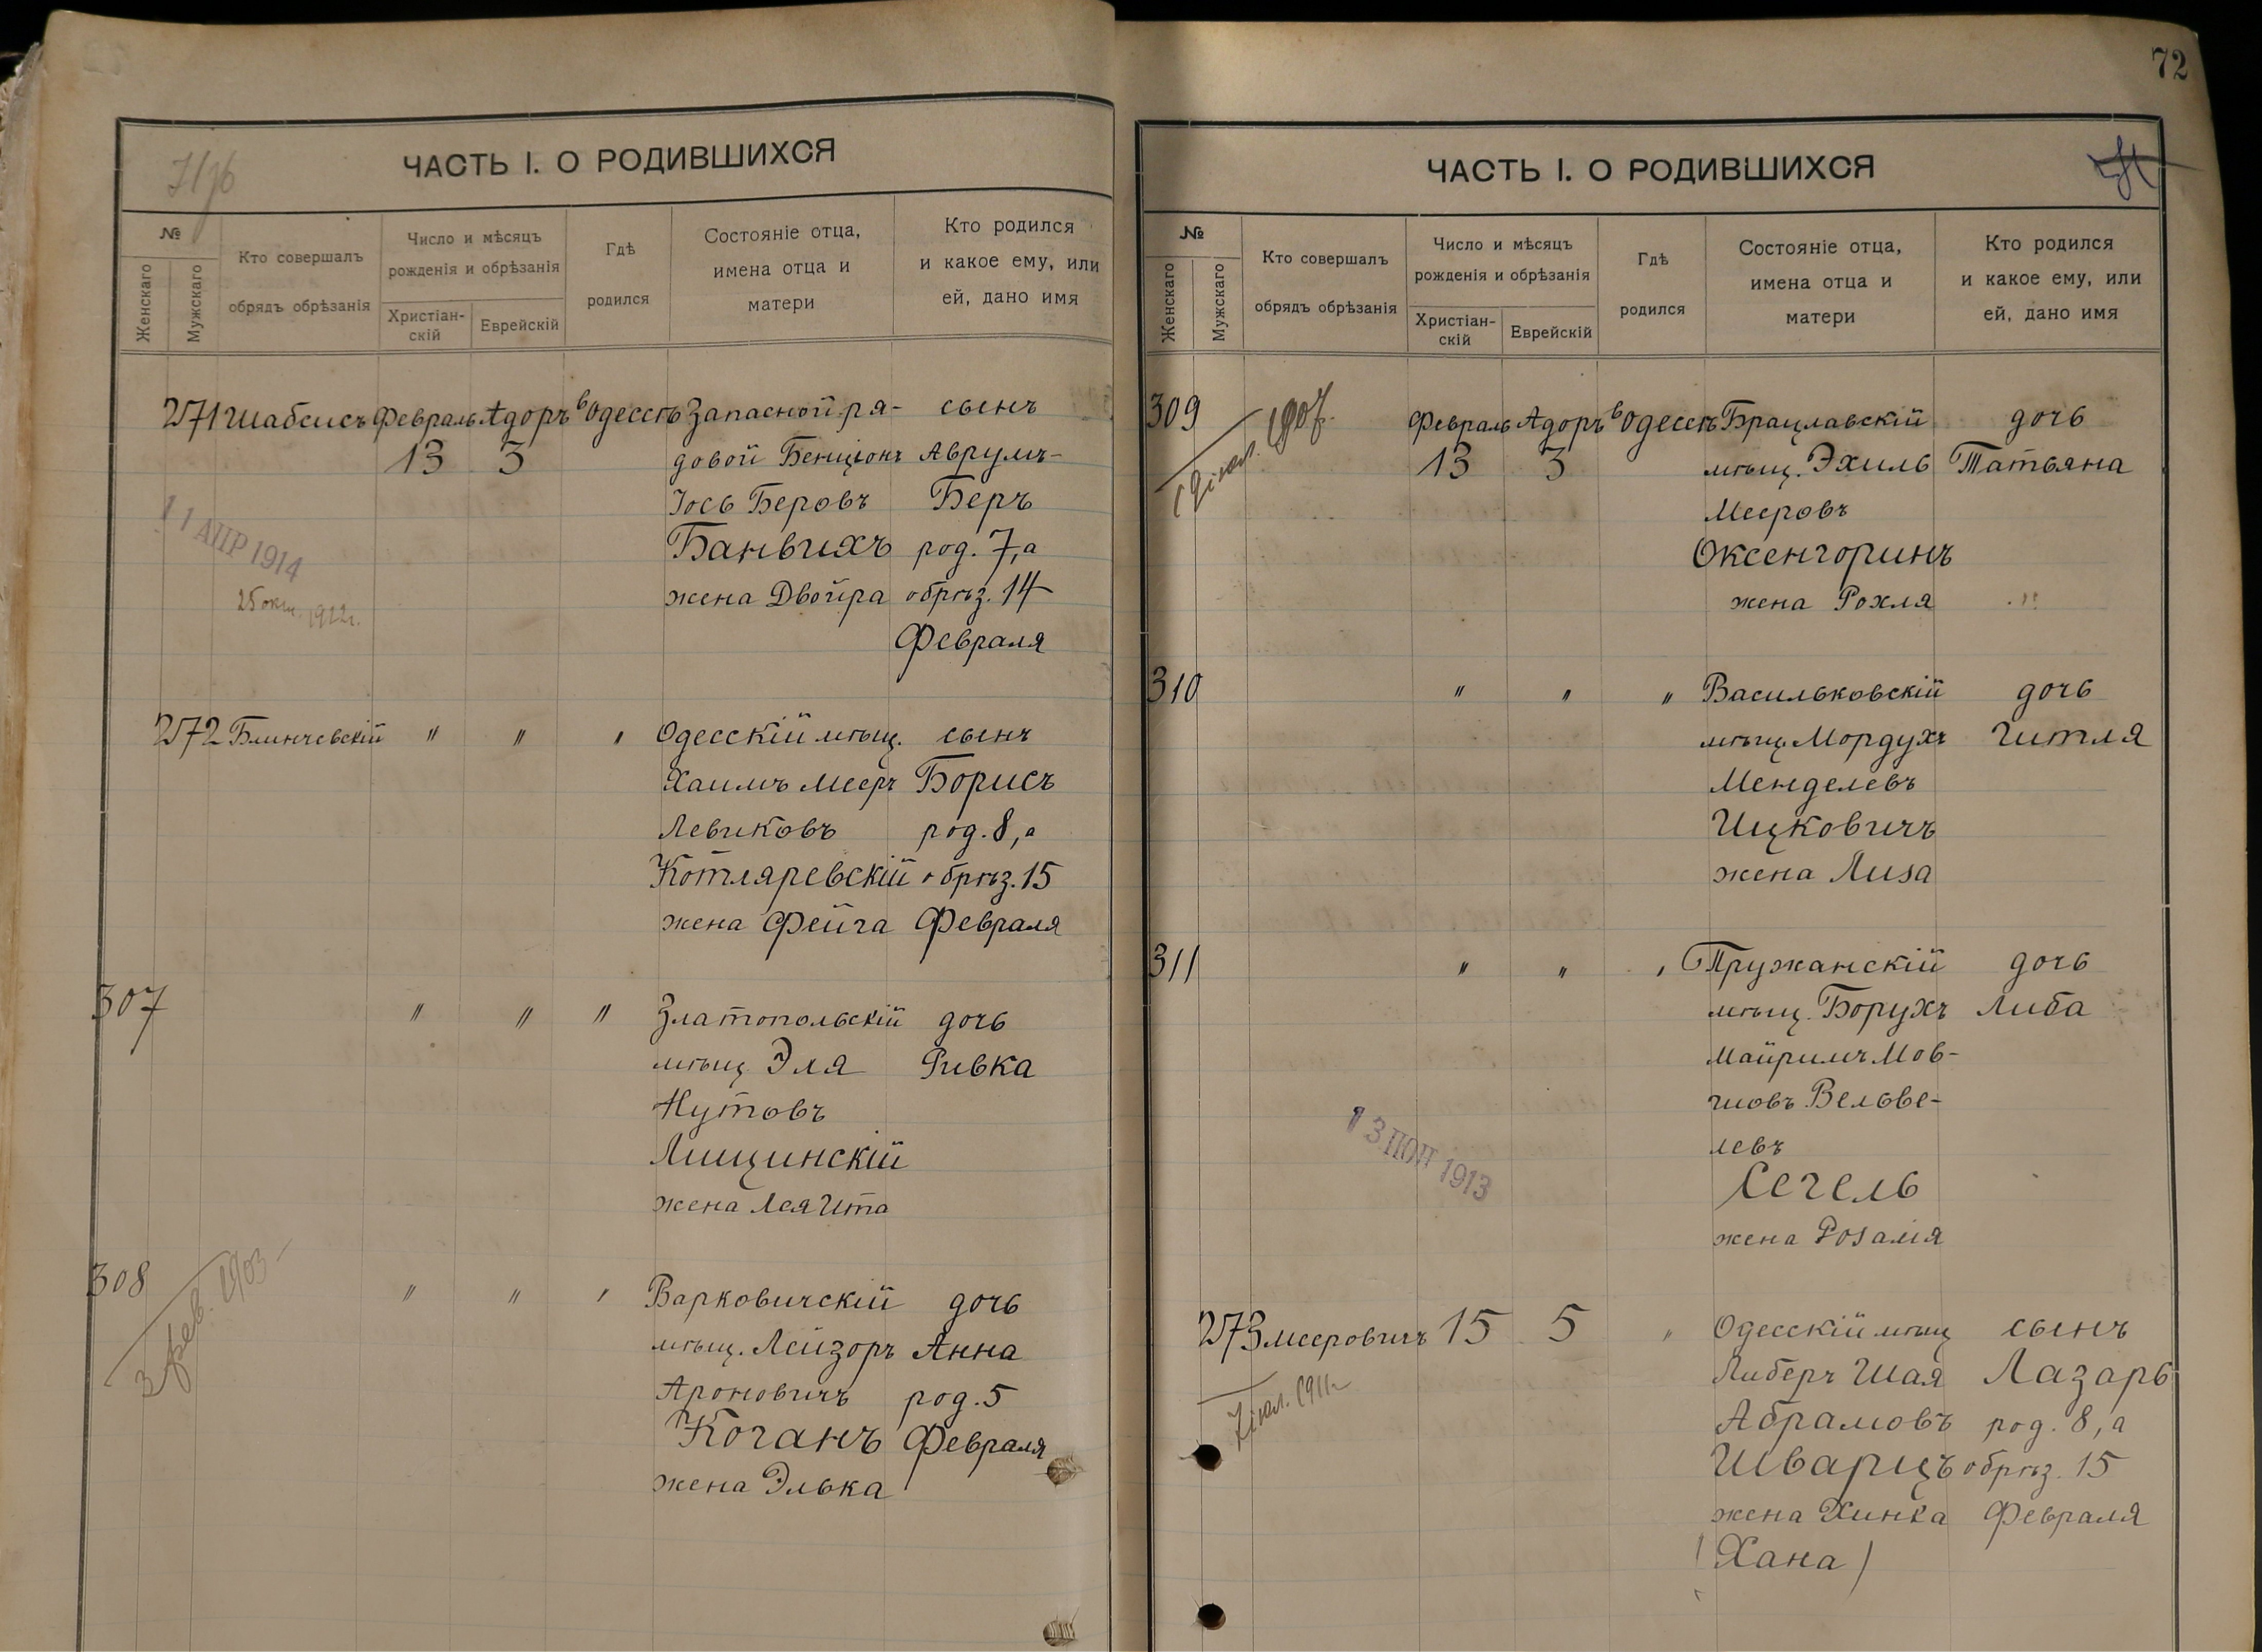 ЧАСТЬ I. О РОДИВШИХСЯ
№
Женскаго
Мужскаго
Кто совершалъ
обрядъ обрѣзанія
Число и мѣсяцъ
рожденія и обрѣзанія
Христіан-
скій
Еврейскій
Гдѣ
родился
Состояніе отца,
имена отца и
матери
Кто родился
и какое ему, или
ей, дано имя
271 Шабсисъ Февраль Адоръ въ Одессѣ Запасной ря- сынъ
13 3 довой Бенціонъ Аврумъ-
Іось Беровъ Беръ
Банвихъ род. 7, а
11 АПР 1914
жена Двойра обрѣз. 14
25 окт. 1912г.
Февраля
272 Блинчевскій " " " Одесскій мѣщ. сынъ
Хаимъ Мееръ Борисъ
Левиковъ род. 8, а
Котляревскій обрѣз. 15
жена Фейга Февраля
307 " " " Златопольскій дочь
мѣщ. Эля Ривка
Нутовъ
Лищинскій
жена Лея Ита
308 " " " Варковичскій дочь
3 фев. 1903
мѣщ. Лейзоръ Анна
Ароновичъ род. 5
Коганъ Февраля
жена Элька
72
ЧАСТЬ I. О РОДИВШИХСЯ
№
Женскаго
Мужскаго
Кто совершалъ
обрядъ обрѣзанія
Число и мѣсяцъ
рожденія и обрѣзанія
Христіан-
скій
Еврейскій
Гдѣ
родился
Состояніе отца,
имена отца и
матери
Кто родился
и какое ему, или
ей, дано имя
309 Февраль Адоръ въ Одессѣ Брацлавскій дочь
1907
13 3 мѣщ. Эхиль Татьяна
Мееровъ
Оксенгоринъ
жена Рохля
310 " " " Васильковскій дочь
мѣщ. Мордухъ Гитля
Менделевъ
Ицковичъ
жена Лиза
311 " " " Пружанскій дочь
мѣщ. Борухъ Либа
Майримъ Мов-
шовъ Вельве-
левъ
13 1913
Сегель
жена Розалія
273 Мееровичъ 15 5 " Одесскій мѣщ сынъ
Либеръ Шая Лазарь
7 іюл. 1911г
Абрамовъ род. 8, а
Шварцъ обрѣз. 15
жена Хинка Февраля
(Хана)